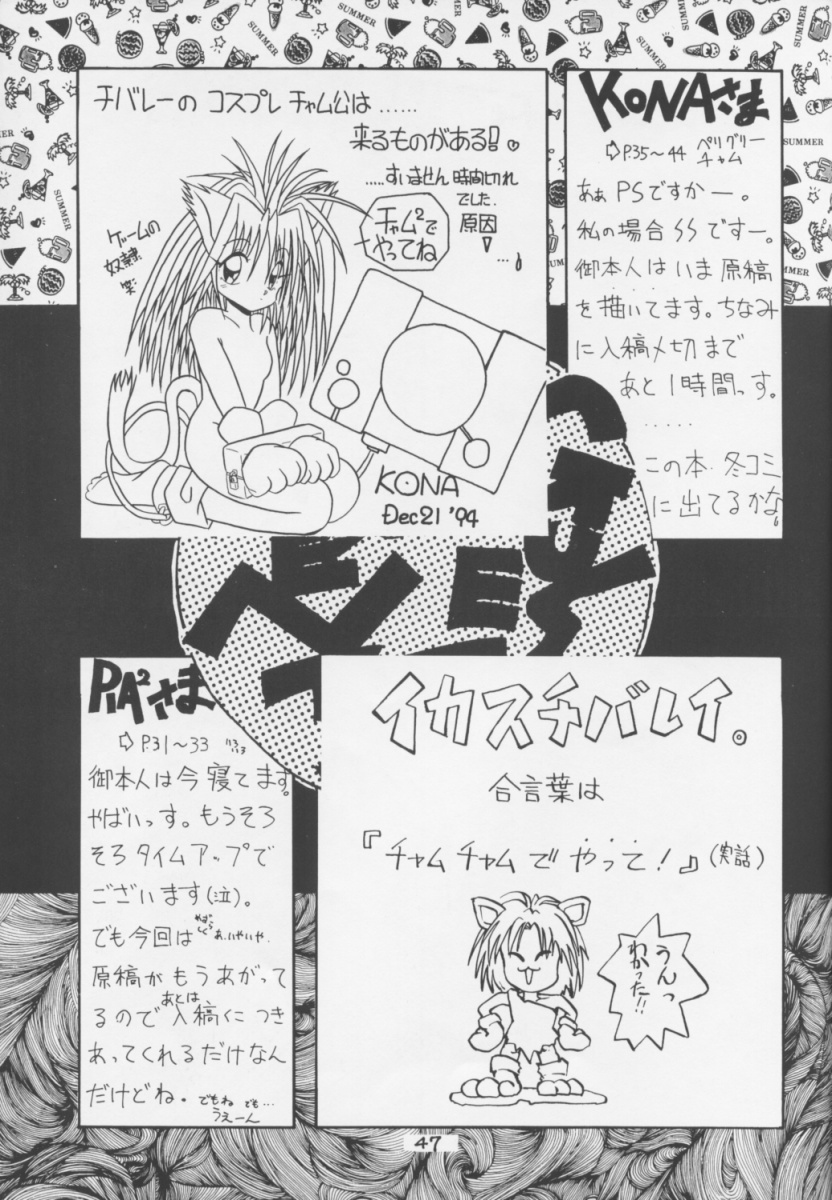 チバレーの コスプレ チャム公は……
来るものがある!!
……すいません 時間切れ
でした.
原因
…
チャム²で
やってね
ゲームの
奴隷
笑
KONA
Dec21 '94
KONAさま
⇨P.35～44 ペリグリー
チャム
あぁ PSですかー。
私の場合 SSですー。
御本人は いま 原稿
を描いてます。ちなみ
に 入稿〆切まで
あと 1時間っす。
……
この本. 冬コミ
に出てるかな。
PIA²さま
⇨P.31～33
御本人は今寝てます。
やばいっす。もうそろ
そろ タイムアップで
ございます(泣)。
でも今回は あ、いやいや
原稿が もう あがって
るので あとは 入稿に つき
あってくれるだけなん
だけどね。でもね でも…
うえーん
イカスチバレイ。
合言葉は
『チャム チャム で やって!』(実話)
うんっ
わかった!!
47
SUMMER
SUMMER
SUMMER
SUMMER
SUMMER